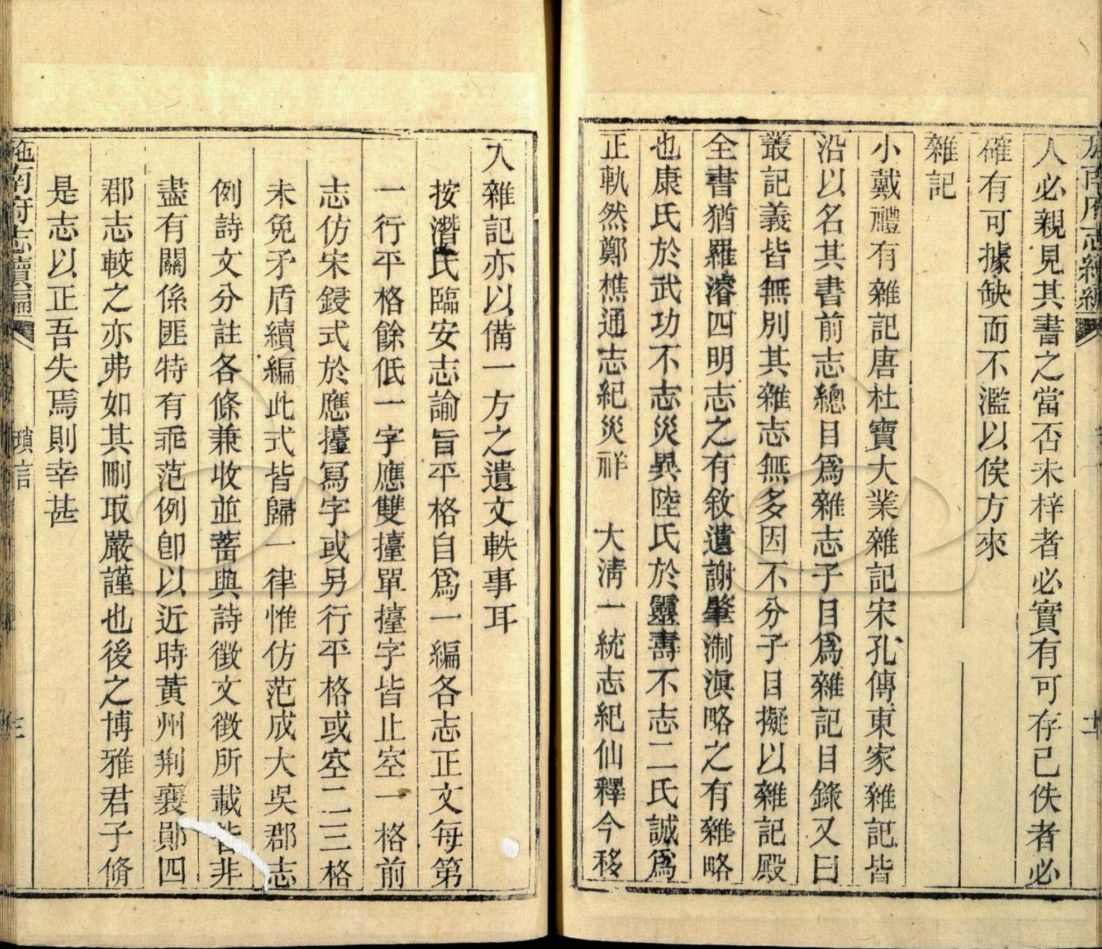 施南府志續編
人必親見其書之當否未梓者必實有可存已佚者必
確有可據缺而不濫以俟方來
雜記
小戴禮有雜記唐杜寶大業雜記宋孔傳東家雜記皆
沿以名其書前志總目爲雜志子目爲雜記目錄又曰
叢記義皆無別其雜志無多因不分子目擬以雜記殿
全書猶羅濬四明志之有敘遺謝肇淛滇略之有雜略
也康氏於武功不志災異陸氏於靈壽不志二氏誠爲
正軌然鄭樵通志紀災祥 大淸一統志紀仙釋今移
入雜記亦以備一方之遺文軼事耳
按潛氏臨安志諭旨平格自爲一編各志正文每第
一行平格餘低一字應雙擡單擡字皆止空一格前
志仿宋鋟式於應擡寫字或另行平格或空二三格
未免矛盾續編此式皆歸一律惟仿范成大吳郡志
例詩文分註各條兼收並蓄典詩徵文徵所載皆非
盡有關係匪特有乖范例卽以近時黃州荆襄鄖四
郡志較之亦弗如其刪取嚴謹也後之博雅君子脩
是志以正吾失焉則幸甚
施南府志續編 瑣言